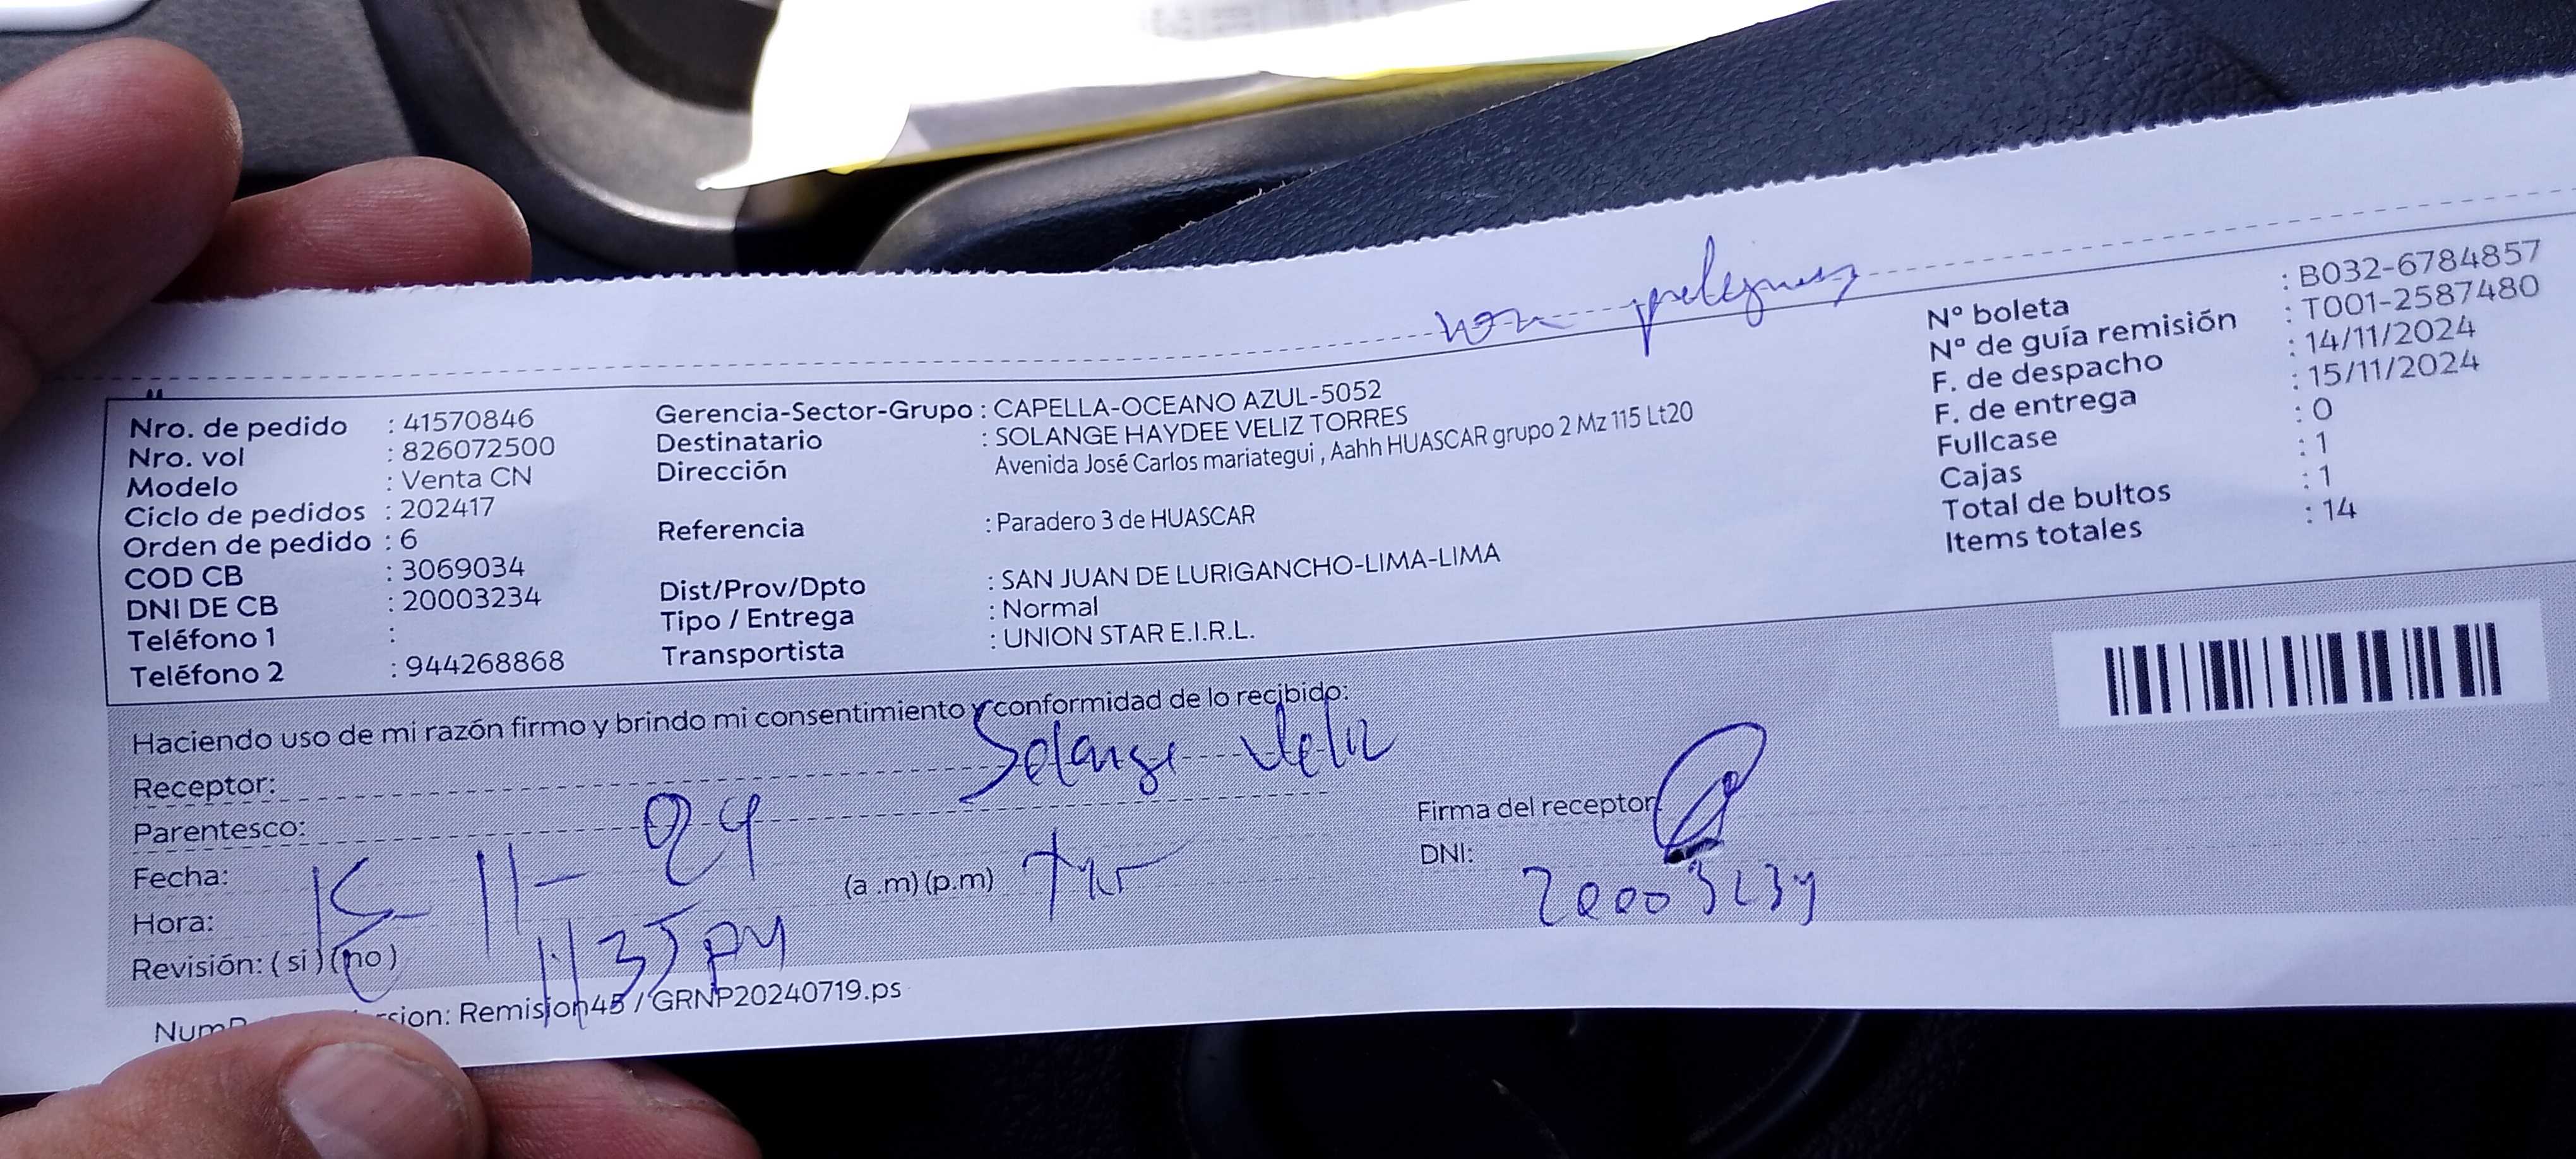 Nro. de pedido : 41570846
Nro. vol : 826072500
Modelo : Venta CN
Ciclo de pedidos : 202417
Orden de pedido : 6
COD CB : 3069034
DNI DE CB : 20003234
Teléfono 1 :
Teléfono 2 : 944268868
Gerencia-Sector-Grupo : CAPELLA-OCEANO AZUL-5052
Destinatario : SOLANGE HAYDEE VELIZ TORRES
Dirección Avenida José Carlos mariategui , Aahh HUASCAR grupo 2 Mz 115 Lt20
Referencia : Paradero 3 de HUASCAR
Dist/Prov/Dpto : SAN JUAN DE LURIGANCHO-LIMA-LIMA
Tipo / Entrega : Normal
Transportista : UNION STAR E.I.R.L.
Nº boleta : B032-6784857
Nº de guía remisión : T001-2587480
F. de despacho : 14/11/2024
F. de entrega : 15/11/2024
Fullcase : 0
Cajas : 1
Total de bultos : 1
Items totales : 14
Haciendo uso de mi razón firmo y brindo mi consentimiento y conformidad de lo recibido:
Receptor: Solange Veliz
Parentesco:
Fecha: 15-11-24
Hora: 1135 pm (a .m) (p.m)
Revisión: ( si ) (no )
Firma del receptor:
DNI: 20003234
Remision45 / GRNP20240719.ps